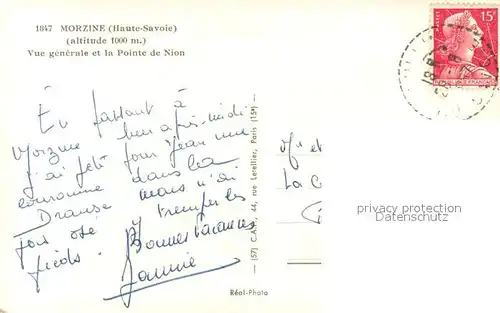 1847 MORZINE (Haute-Savoie)
(altitude 1000 m.)
Vue générale et la Pointe de Nion
15F
En passant à
Morzine ben après-midi
j'ai jeté pour Jean une
couronne dans la
Dranse mais n'ai
pas osé tremper les
pieds. Bonnes Vacances
Jannie
(57) C.A.P., 44, rue Letellier, Paris (15e)
La
privacy protection
Datenschutz
Réal-Photo